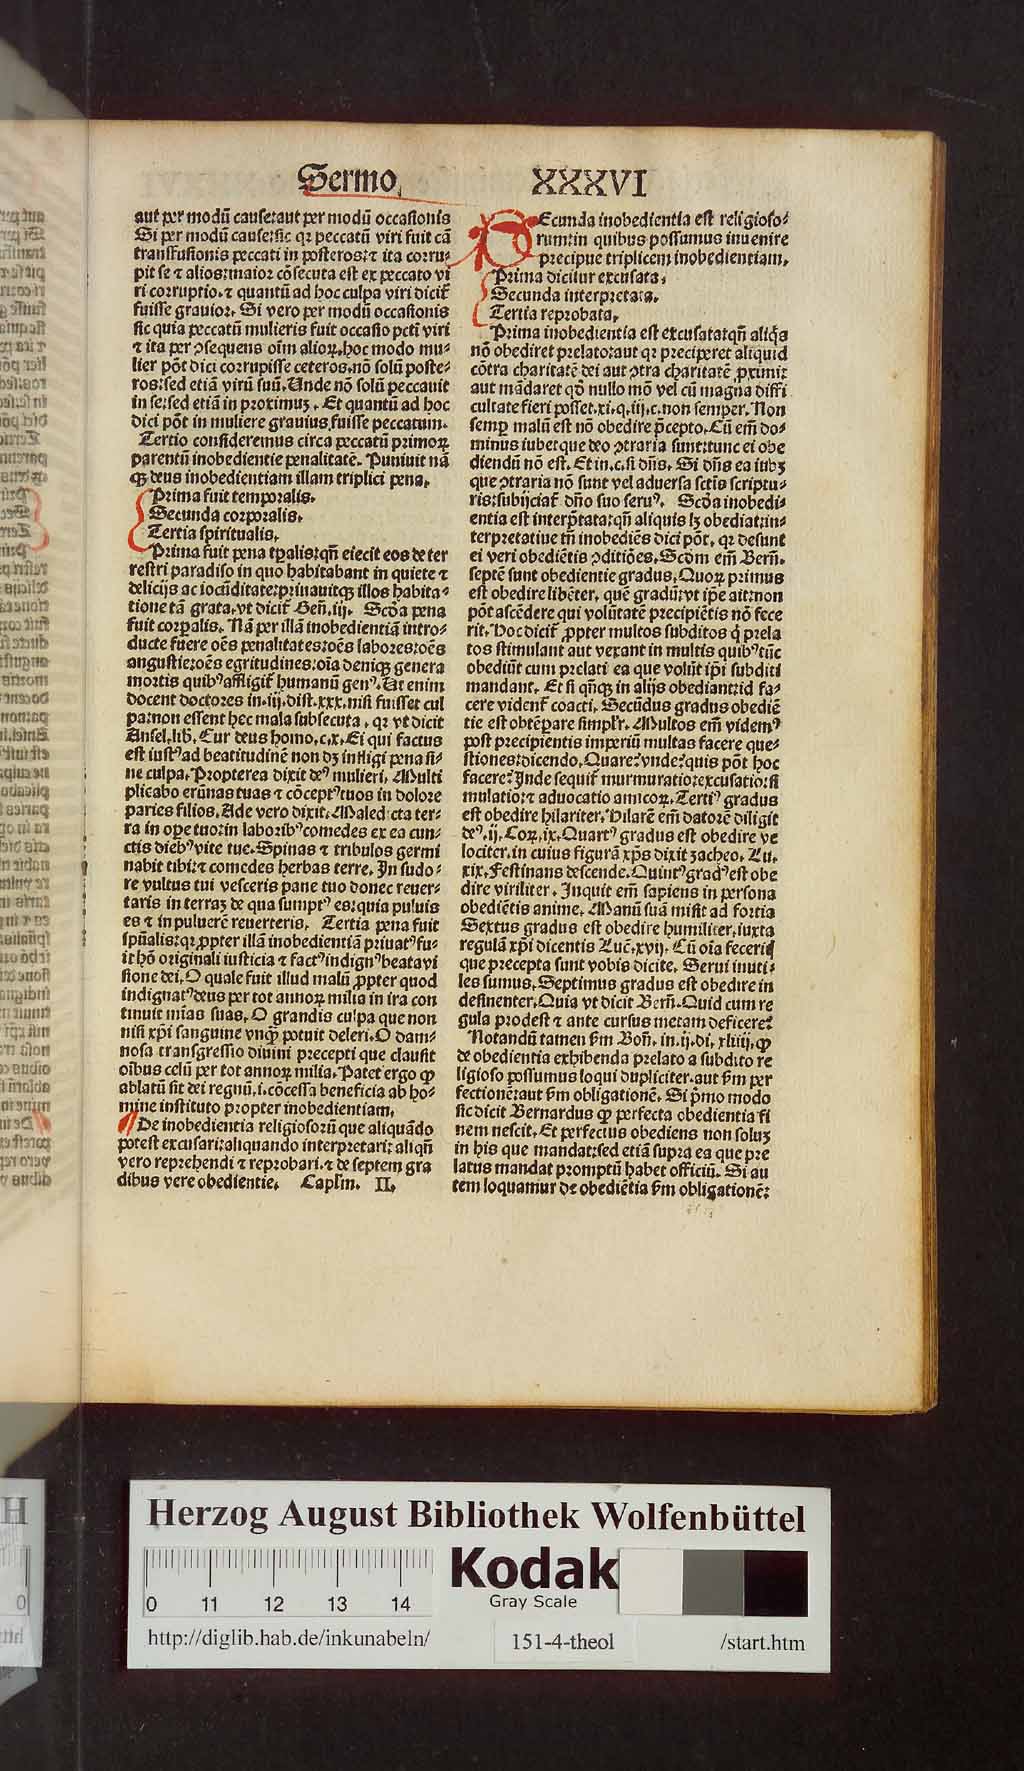 Sermo XXXVI
aut per modū cause:aut per modū occasionis
Si per modū cause:sic qꝛ peccatū viri fuit cā
transfusionis peccati in posteros:⁊ ita corru-
pit se ⁊ alios:maior cōsecuta est ex peccato vi
ri corruptio.⁊ quantū ad hoc culpa viri dicit᷑
fuisse grauior. Si vero per modū occasionis
sic quia peccatū mulieris fuit occasio pcti viri
⁊ ita per ↄsequens oīm alioꝝ.hoc modo mu-
lier pōt dici corrupisse ceteros.nō solū poste-
ros:sed etiā virū suū.Unde nō solū peccauit
in se:sed etiā in proximuꝫ. Et quantū ad hoc
dici pōt in muliere grauius fuisse peccatum.
Tertio consideremus circa peccatū primoꝝ
parentū inobedientie penalitatē. Puniuit nā
qꝫ deus inobedientiam illam triplici pena.
Prima fuit temporalis.
Secunda corporalis.
Tertia spiritualis.
Prima fuit pena tp̄alis:qn̄ eiecit eos de ter
restri paradiso in quo habitabant in quiete ⁊
delicijs ac iocūditate:priuauitqꝫ illos habita-
tione tā grata.vt dicit᷑ Gen̄.iij. Scd̄a pena
fuit corꝑalis. Nā per illā inobedientiā intro-
ducte fuere oēs penalitates:oēs labores:oēs
angustie:oēs egritudines:oīa deniqꝫ genera
mortis quibꝰ affligit᷑ humanū genꝰ. Ut enim
docent doctores in.iij.dist.xxx.nisi fuisset cul
pa:non essent hec mala subsecuta. qꝛ vt dicit
Ansel.lib. Cur deus homo.c.x. Ei qui factus
est iustꝰ ad beatitudinē non dꝫ infligi pena si-
ne culpa. Propterea dixit deꝰ mulieri. Multi
plicabo erūnas tuas ⁊ cōceptꝰ tuos in dolore
paries filios. Ade vero dixit. Maledicta ter-
ra in oꝑe tuo:in laboribꝰ comedes ex ea cun-
ctis diebꝰ vite tue. Spinas ⁊ tribulos germi
nabit tibi:⁊ comedes herbas terre. In sudo-
re vultus tui vesceris pane tuo donec reuer-
taris in terraꝫ de qua sumptꝰ es:quia puluis
es ⁊ in puluerē reuerteris. Tertia pena fuit
spūalis:qꝛ ꝓpter illā inobedientiā priuatꝰ fu-
it hō originali iusticia ⁊ factꝰ indignꝰ beata vi
sione dei. O quale fuit illud malū ꝓpter quod
indignatꝰ deus per tot annoꝝ milia in ira con
tinuit mīas suas. O grandis culpa que non
nisi xp̄i sanguine vnqꝫ potuit deleri. O dam-
nosa transgressio diuini precepti que clausit
oībus celū per tot annoꝝ milia. Patet ergo ꝙ
ablatū sit dei regnū.i.cōcessa beneficia ab ho-
mine instituto propter inobedientiam.
De inobedientia religiosorū que aliquādo
potest excusari:aliquando interpretari:aliqn̄
vero reprehendi ⁊ reprobari.⁊ de septem gra
dibus vere obedientie. Caplm̄. II.
Ecunda inobedientia est religioso-
rum:in quibus possumus inuenire
precipue triplicem inobedientiam.
Prima dicitur excusata.
Secunda interpretata.
Tertia reprobata.
Prima inobedientia est excusata:qn̄ aliq̇s
nō obediret prelato:aut qꝛ preciperet aliquid
cōtra charitatē dei aut ↄtra charitatē ꝓximi:
aut mādaret qd̄ nullo mō vel cū magna diffi
cultate fieri posset.xi.q.iij.c.non semper. Non
semꝑ malū est nō obedire p̄cepto. Cū em̄ do-
minus iubet que deo ↄtraria sunt:tunc ei obe
diendū nō est. Et in.c.si dn̄s. Si dn̄s ea iubꝫ
que ↄtraria nō sunt vel aduersa sctis scriptu-
ris:subijciat᷑ dn̄o suo seruꝰ. Scd̄a inobedi-
entia est interp̄tata:qn̄ aliquis lꝫ obediat:in-
terpretatiue tn̄ inobediēs dici pōt. qꝛ desunt
ei veri obediētis ↄditiōes. Scd̄m em̄ Bern̄.
septē sunt obedientie gradus. Quoꝝ primus
est obedire libēter. quē gradū:vt ip̄e ait:non
pōt ascēdere qui volūtatē precipiētis nō fece
rit. Hoc dicit᷑ ꝓpter multos subditos q̇ prela
tos stimulant aut vexant in multis quibꝰ tūc
obediūt cum prelati ea que volūt ip̄i subditi
mandant. Et si qn̄qꝫ in alijs obediant:id fa-
cere vident᷑ coacti. Secūdus gradus obediē
tie est obtēꝑare simpl'r. Multos em̄ videmꝰ
post precipientis imperiū multas facere que-
stiones:dicendo. Quare?vnde?quis pōt hoc
facere?Inde sequit᷑ murmuratio:excusatio:si
mulatio:⁊ aduocatio amicoꝝ. Tertiꝰ gradus
est obedire hilariter. Hilarē em̄ datorē diligit
deꝰ.ij. Coꝝ.ix. Quartꝰ gradus est obedire ve
lociter.in cuius figurā xp̄s dixit zacheo. Lu.
xix. Festinans descende. Quintꝰ gradꝰ est obe
dire viriliter. Inquit em̄ sapiens in persona
obediētis anime. Manū suā misit ad fortia
Sextus gradus est obedire humiliter.iuxta
regulā xp̄i dicentis Luc̄.xvij. Cū oīa feceritꝭ
que precepta sunt vobis dicite. Serui inuti-
les sumus. Septimus gradus est obedire in
desinenter. Quia vt dicit Bern̄. Quid cum re
gula prodest ⁊ ante cursus metam deficere?
Notandū tamen ẜm Bon̄. in.ij.di.xliiij.ꝙ
de obedientia exhibenda prelato a subdito re
ligioso possumus loqui dupliciter.aut ẜm per
fectionē:aut ẜm obligationē. Si p̄mo modo
sic dicit Bernardus ꝙ perfecta obedientia fi
nem nescit. Et perfectus obediens non soluꝫ
in his que mandat:sed etiā supra ea que pre
latus mandat promptū habet officiū. Si au
tem loquamur de obediētia ẜm obligationē:
Herzog August Bibliothek Wolfenbüttel
Kodak
Gray Scale
0 11 12 13 14
http://diglib.hab.de/inkunabeln/ 151-4-theol /start.htm